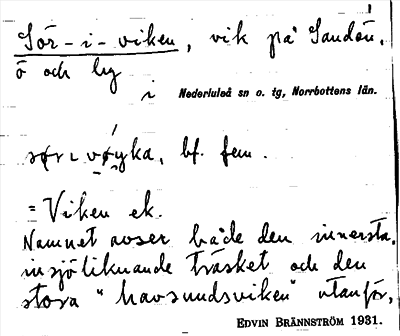 Sör-i-viken, vik på Sandön,
ö och by
i Nederluleå sn o. tg, Norrbottens län.
bf. fem.
= Viken ek.
Namnet avser både den innersta,
insjöliknande träsket och den
stora "havssundsviken" utanför,
EDVIN BRÄNNSTRÖM 1931.